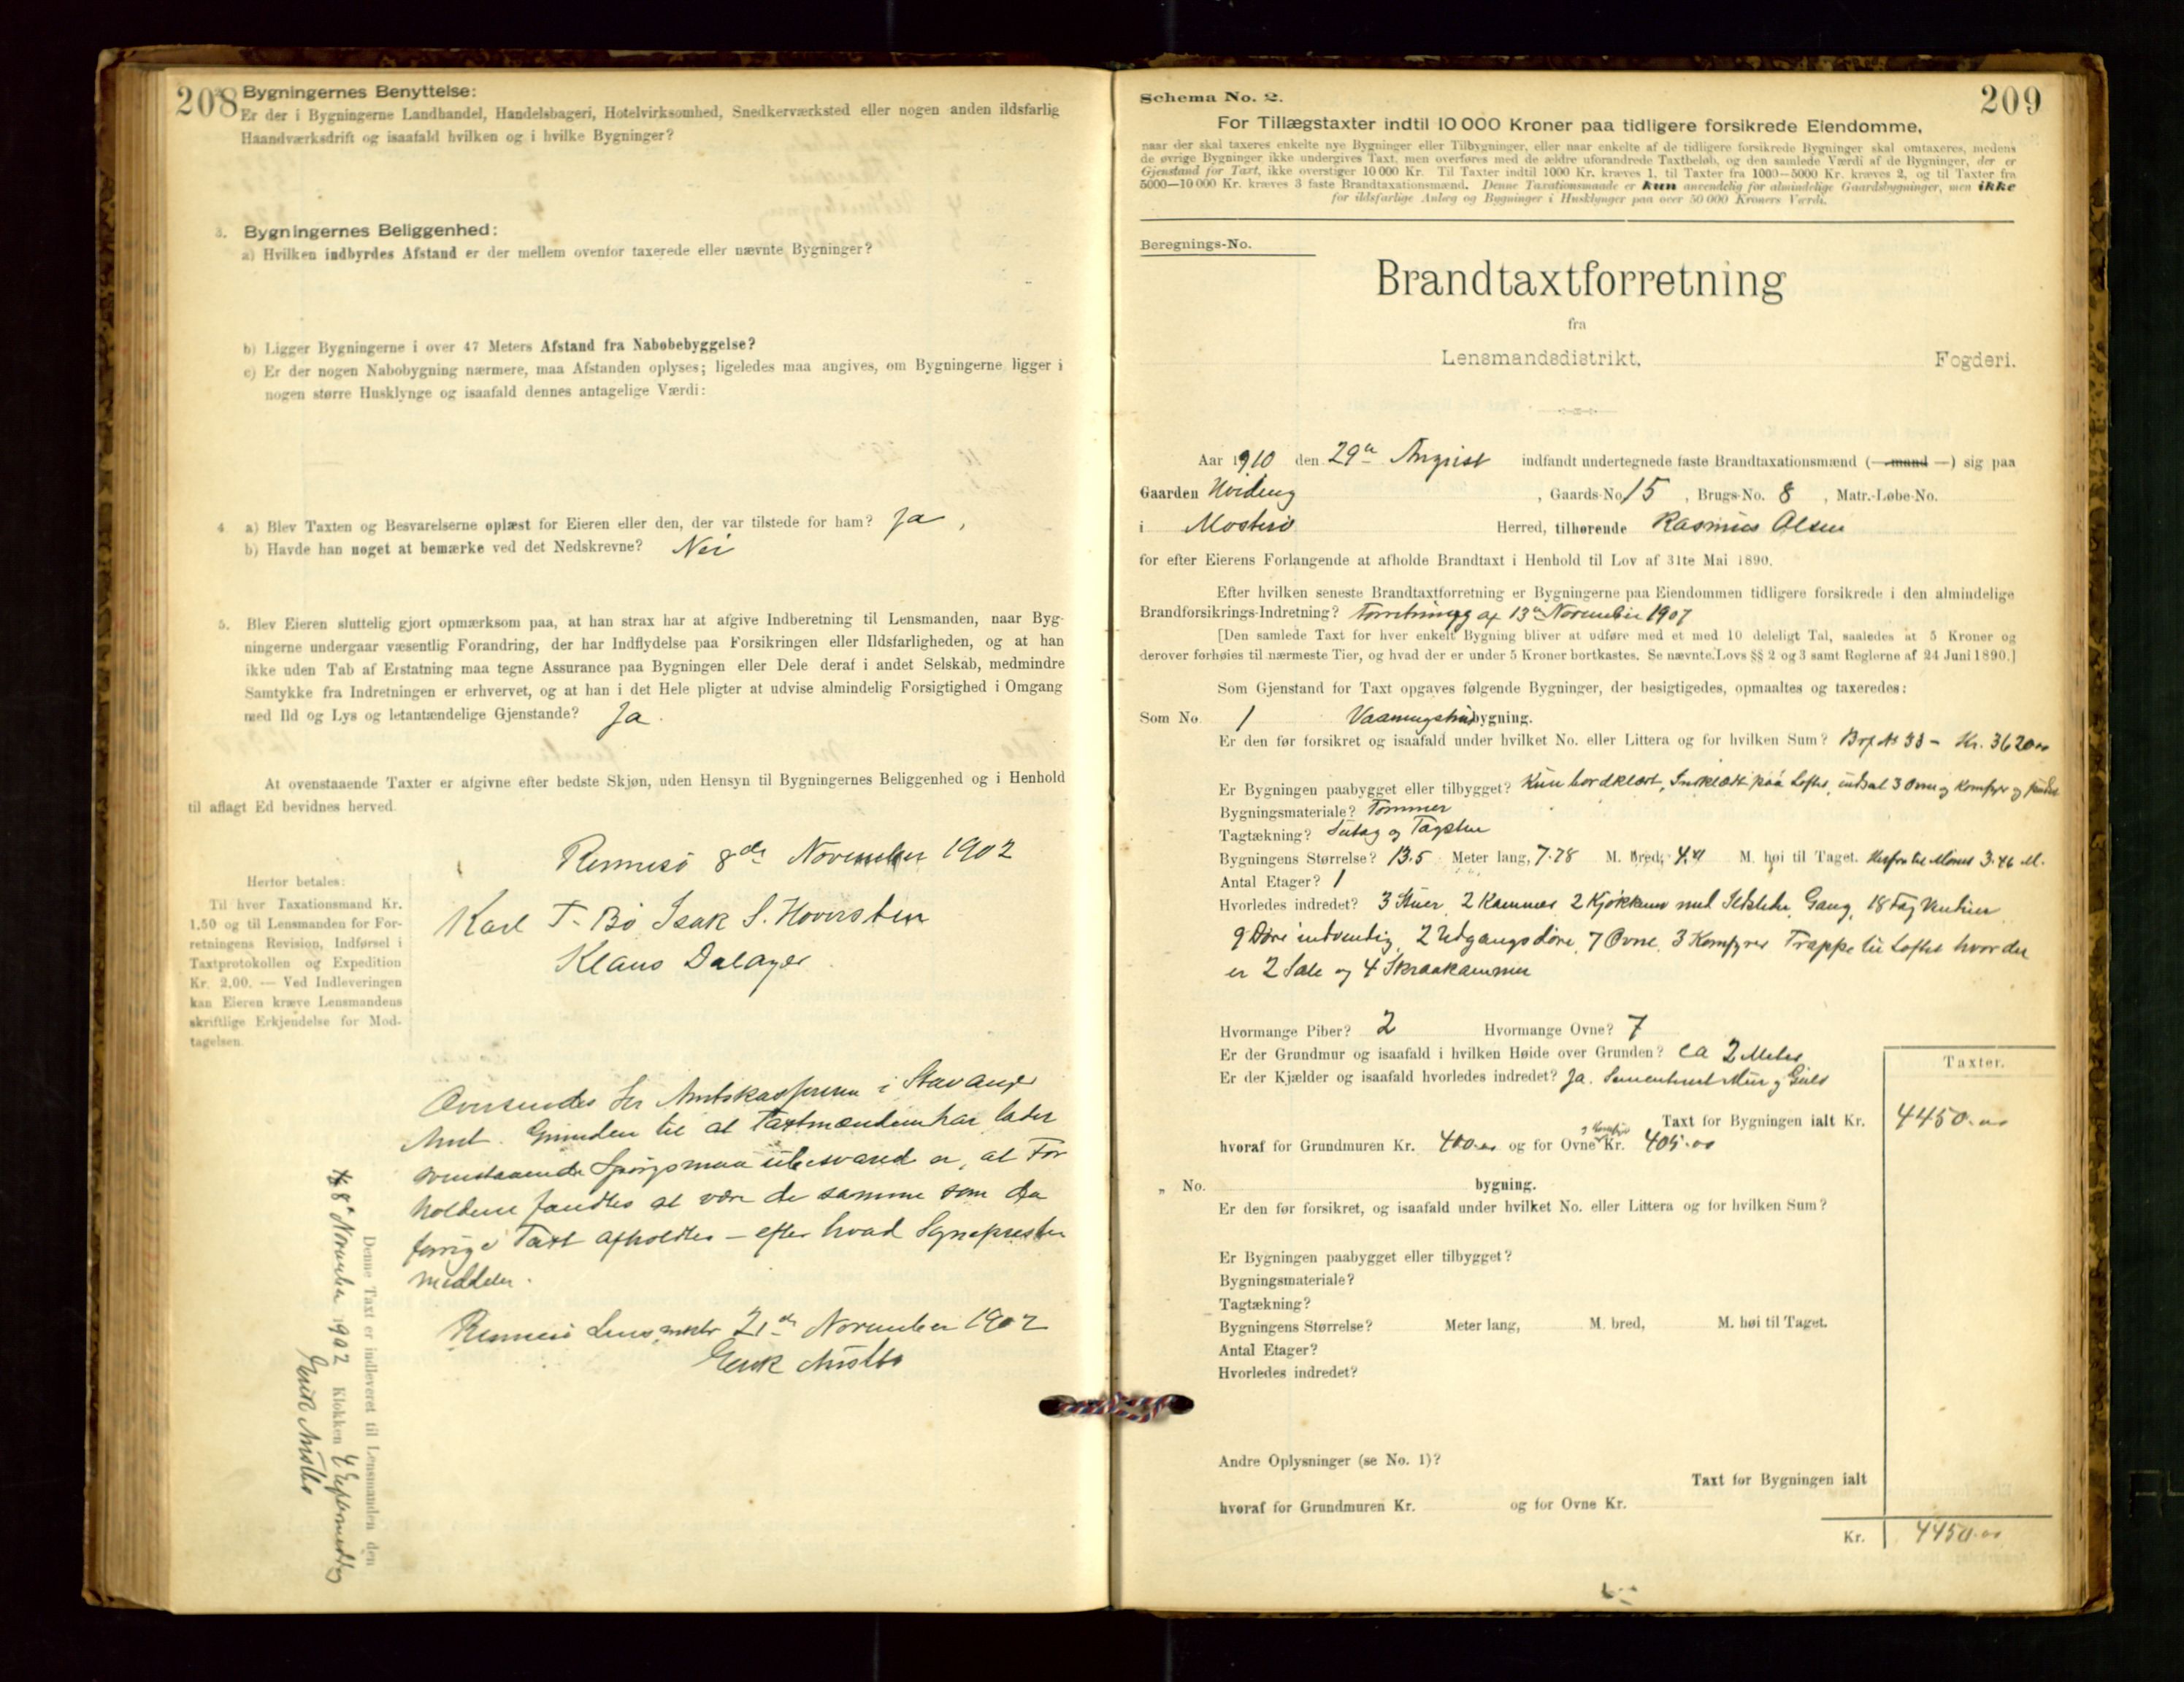 208
Bygningernes Benyttelse:
Er der i Bygningerne Landhandel, Handelsbageri, Hotelvirksomhed, Snedkerværksted eller nogen anden ildsfarlig
Haandværksdrift og isaafald hvilken og i hvilke Bygninger?
3. Bygningernes Beliggenhed:
a) Hvilken indbyrdes Afstand er der mellem ovenfor taxerede eller nævnte Bygninger?
b) Ligger Bygningerne i over 47 Meters Afstand fra Nabobebyggelse?
c) Er der nogen Nabobygning nærmere, maa Afstanden oplyses; ligeledes maa angives, om Bygningerne ligger i
nogen større Husklynge og isaafald dennes antagelige Værdi:
4 a) Blev Taxten og Besvarelserne oplæst for Eieren eller den, der var tilstede for ham? Ja,
b) Havde han noget at bemærke ved det Nedskrevne? Nei
5. Blev Eieren sluttelig gjort opmærksom paa, at han strax har at afgive Indberetning til Lensmanden, naar Byg-
ningerne undergaar væsentlig Forandring, der har Indflydelse paa Forsikringen eller Ildsfarligheden, og at han
ikke uden Tab af Erstatning maa tegne Assurance paa Bygningen eller Dele deraf i andet Selskab, medmindre
Samtykke fra Indretningen er erhvervet, og at han i det Hele pligter at udvise almindelig Forsigtighed i Omgang
med Ild og Lys og letantændelige Gjenstande? Ja.
At ovenstaaende Taxter er afgivne efter bedste Skjøn, uden Hensyn til Bygningernes Beliggenhed og i Henhold
til aflagt Ed bevidnes herved
Rennesø 8de November 1902
Karl T. Bø Isak S. Hoversten
Klaus Dalager
Herfor betales:
Til hver Taxationsmand Kr.
1,50 og til Lensmanden for For-
retningens Revision, Indførsel i
Taxtprotokollen og Expedition
Kr. 2,00. — Ved Indleveringen
kan Eieren kræve Lensmandens
skriftlige Erkjendelse for Mod-
tagelsen.
Oversendes Hr Amtskassereren i Stavanger
Amt. Grunden til at Taxtmændene har ladet
ovenstaaende Spørgsmaal ubesvared er, at For
holdene fandtes at være de samme som da
forrige Taxt afholdtes – efter hvad Sognepresten
meddeler.
Rennesø 21de November 1902
Denne Taxt er indleveret til Lensmanden den
8de November 1902 Klokken 4 Eftermiddag
209
Schema No. 2.
For Tillægstaxter indtil 10 000 Kroner paa tidligere forsikrede Eiendomme,
naar der skal taxeres enkelte nye Bygninger eller Tilbygninger, eller naar enkelte af de tidligere forsikrede Bygninger skal omtaxeres, medens
de øvrige Bygninger ikke undergives Taxt, men overføres med de ældre uforandrede Taxtbeløb, og den samlede Værdi af de Bygninger, der er
Gjenstand for Taxt, ikke overstiger 10 000 Kr. Til Taxter indtil 1000 Kr. kræves 1, til Taxter fra 1000—5000 Kr. kræves 2, og til Taxter fra
5000—10 000 Kr. kræves 3 faste Brandtaxationsmænd. Denne Taxationsmaade er kun anvendelig for almindelige Gaardsbygninger, men ikke
for ildsfarlige Anlæg og Bygninger i Husklynger paa over 50 000 Kroners Værdi.
Beregnings-No.
Brandtaxtforretning
fra
Lensmandsdistrikt, Fogderi.
Aar 1910 den 29de August indfandt undertegnede faste Brandtaxationsmænd (—mand —) sig paa
Gaarden , Gaards-No 15 , Brugs-No. 8 , Matr.-Løbe-No.
i Mosterø Herred, tilhørende Rasmus Olsen
for efter Eierens Forlangende at afholde Brandtaxt i Henhold til Lov af 31te Mai 1890.
Efter hvilken seneste Brandtaxtforretning er Bygningerne paa Eiendommen tidligere forsikrede i den almindelige
Brandforsikrings-Indretning? Forretning af 13de November 1907
[Den samlede Taxt for hver enkelt Bygning bliver at udføre med et med 10 deleligt Tal, saaledes at 5 Kroner og
derover forhøies til nærmeste Tier, og hvad der er under 5 Kroner bortkastes. Se nævnte Lovs §§ 2 og 3 samt Reglerne af 24 Juni 1890.]
Som Gjenstand for Taxt opgaves følgende Bygninger, der besigtigedes, opmaaltes og taxeredes:
Som No. 1 Vaaningshusbygning.
Er den før forsikret og isaafald under hvilket No. eller Littera og for hvilken Sum? Brf No 33 – Kr. 3620.00
Er Bygningen paabygget eller tilbygget? Kun bordklædt, Inskledt paa Loftet, indsat 3 Ovne og Komfyr og
Bygningsmateriale? Tømmer
Tagtækning? Sutag og Tagsten
Bygningens Størrelse? 13.5 Meter lang, 7.78 M. bred, 4.4 M. høi til Taget. Herfra til Mønet 3.46 M.
Antal Etager? 1
Hvorledes indredet? 3 Stuer, 2 Kammer, 2 Kjøkkener med Ildsteder, Gang, 18 Fag Vinduer
9 Døre indvendig, 2 Udgangsdøre, 7 Ovne, 3 Komfyrer Trappe til Loftet hvor der
er 2 Sale og 4 Skraakammer
Hvormange Piber? 2 Hvormange Ovne? 7
Er der Grundmur og isaafald i hvilken Høide over Grunden? ca 2 Meter
Er der Kjælder og isaafald hvorledes indredet? Ja. Sementeret Mur og Gulv
Taxter.
Taxt for Bygningen ialt Kr. 4450.00
hvoraf for Grundmuren Kr. 400.00 og for Ovne og Komfyr Kr. 405.00
„ No. bygning.
Er den før forsikret, og isaafald under hvilket No. eller Littera og for hvilken Sum?
Er Bygningen paabygget eller tilbygget?
Bygningsmateriale?
Tagtækning?
Bygningens Størrelse? Meter lang, M. bred, M. høi til Taget.
Antal Etager?
Hvorledes indredet?
Andre Oplysninger (se No. 1)?
Taxt for Bygningen ialt
hvoraf for Grundmuren Kr. og for Ovne Kr.
Kr. 4450.00